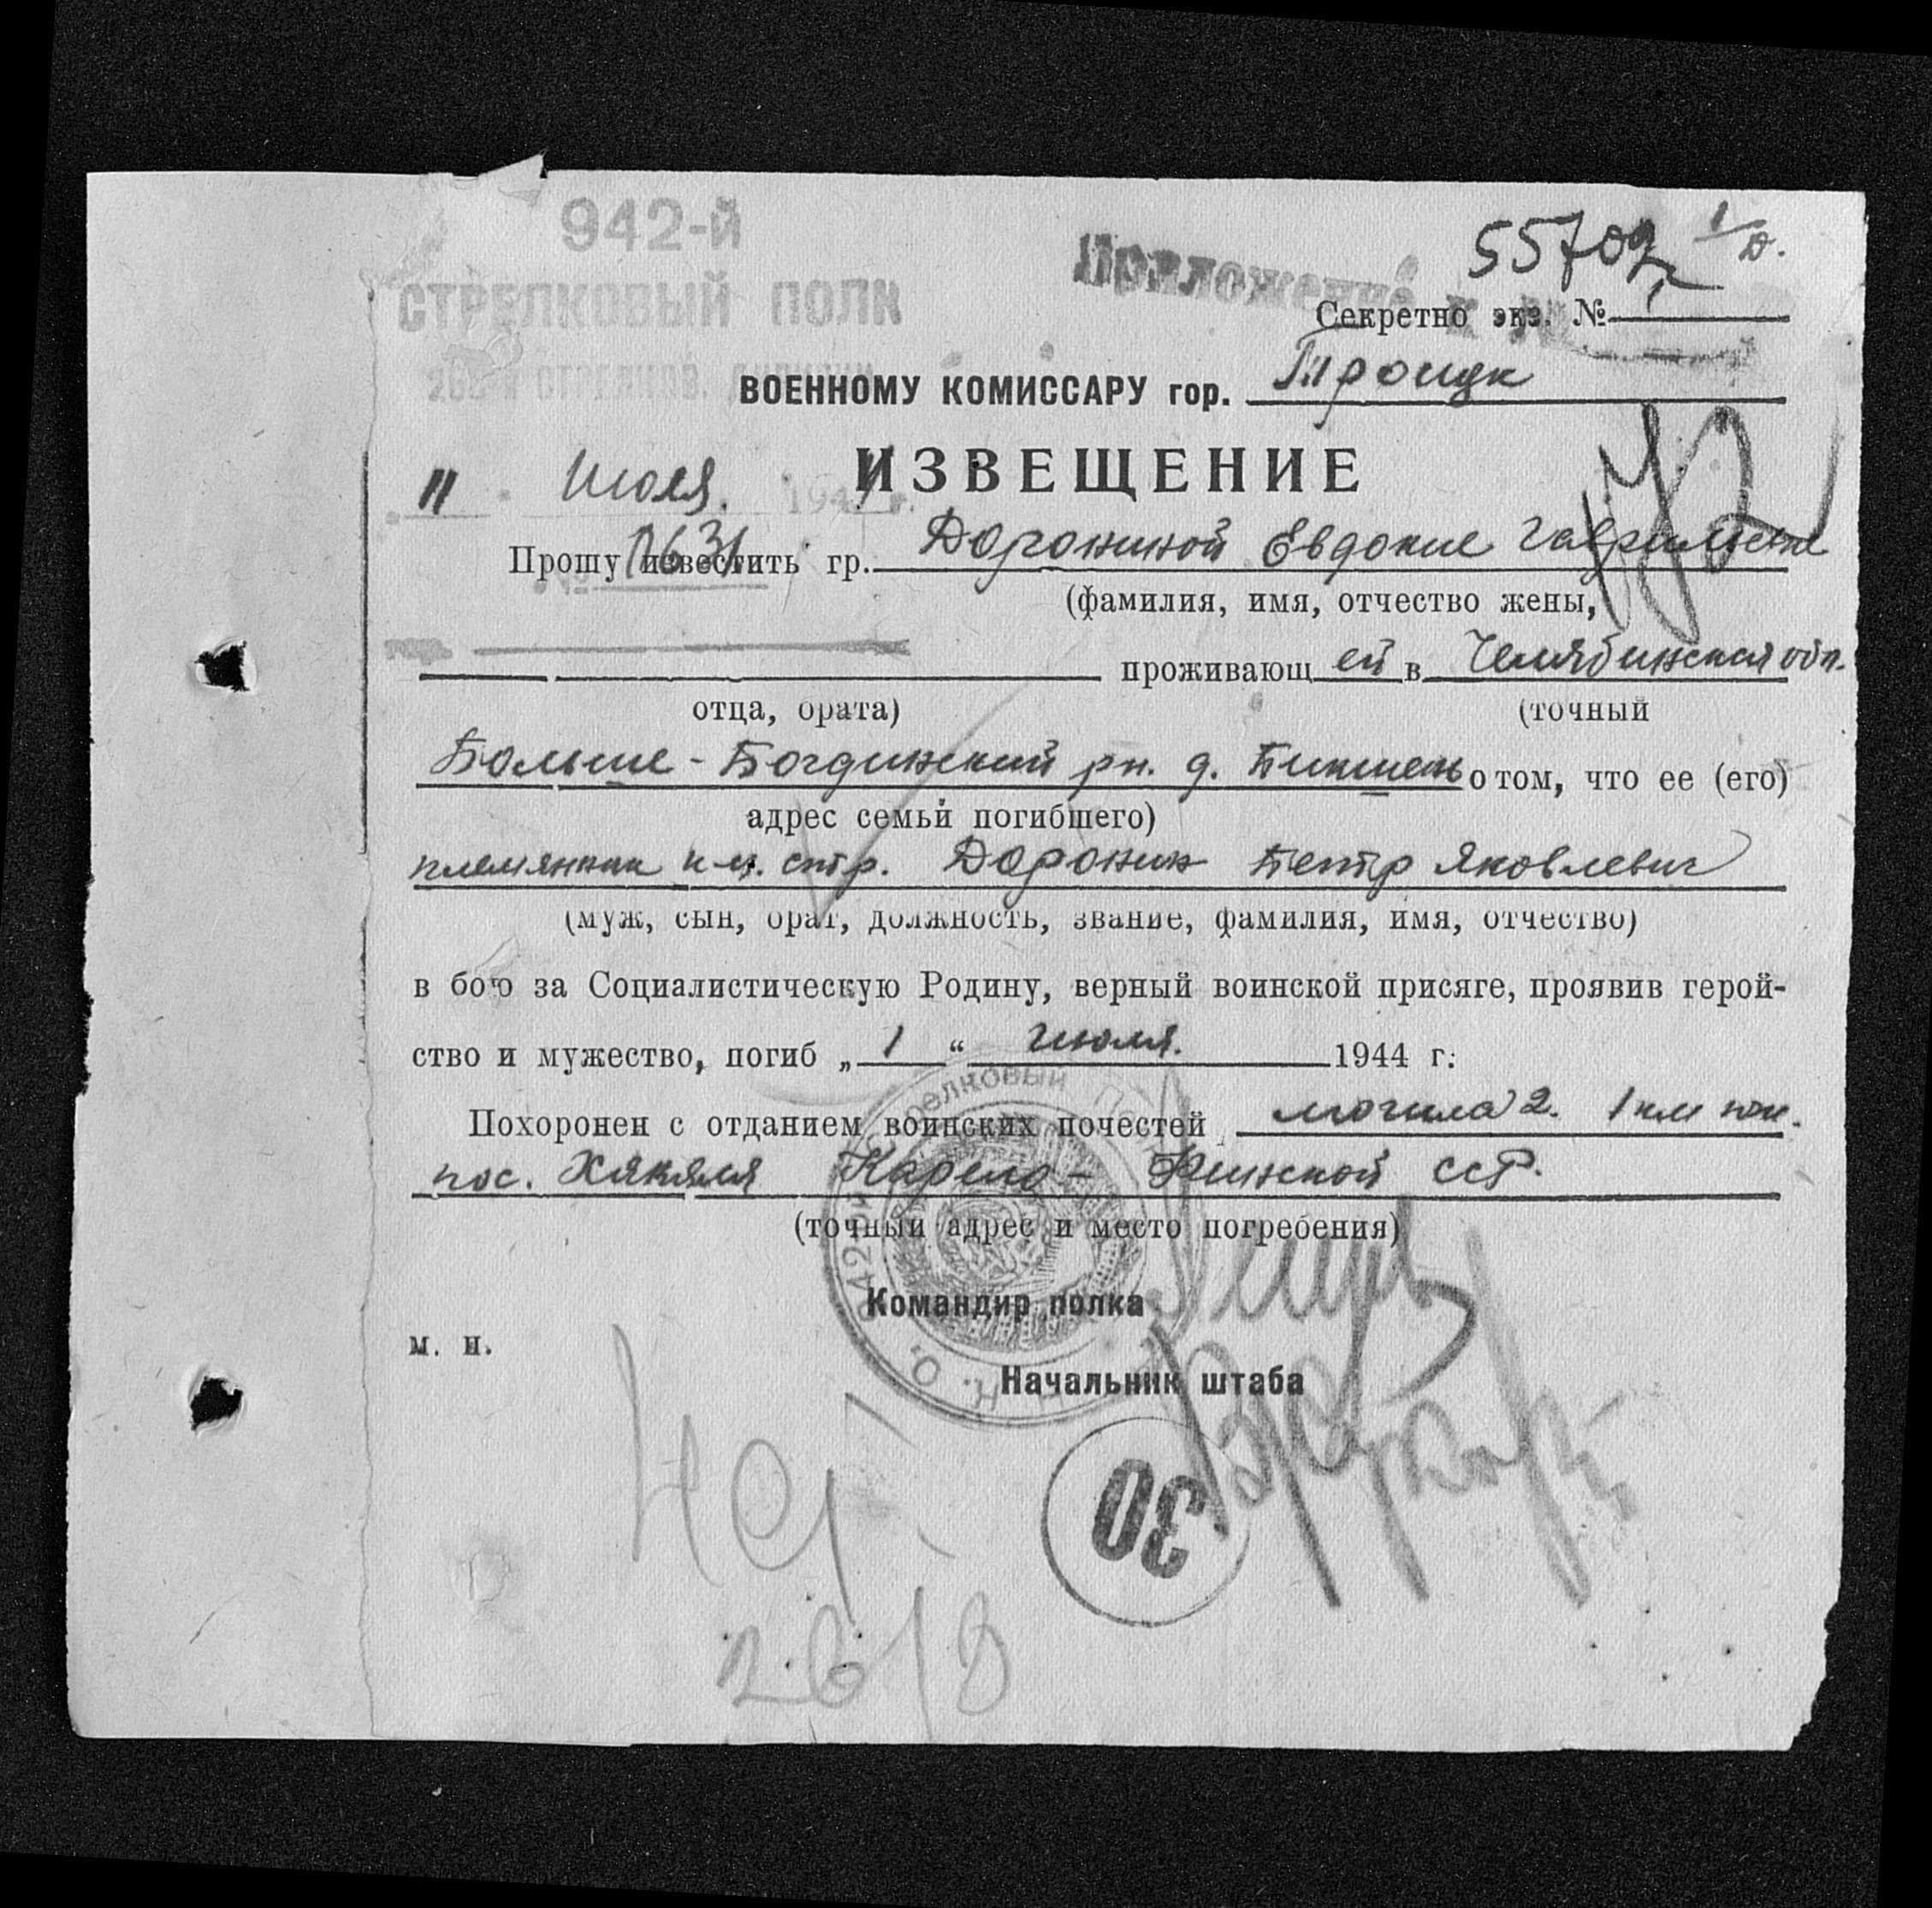 942-й
СТРЕЛКОВЫЙ ПОЛК
Приложение к №
55702
Секретно экз. №
ВОЕННОМУ КОМИССАРУ гор. Троицк
ИЗВЕЩЕНИЕ
11 Июля 1944 г.
Прошу известить гр. Дорониной Евдокие
№
(фамилия, имя, отчество жены,
проживающ ей в Челябинская обл.
отца, брата) (точный
Больше- рн. д. о том, что ее (его)
адрес семьи погибшего)
племянник стр. Доронин Петр Яковлевич
(муж, сын, брат, должность, звание, фамилия, имя, отчество)
в бою за Социалистическую Родину, верный воинской присяге, проявив герой-
ство и мужество, погиб „ 1 “ июля. 1944 г.
Похоронен с отданием воинских почестей могила 2. 1 км
пос. Хякяля Карело-Финской ССР.
(точный адрес и место погребения)
Командир полка
м. п.
Начальник штаба
30